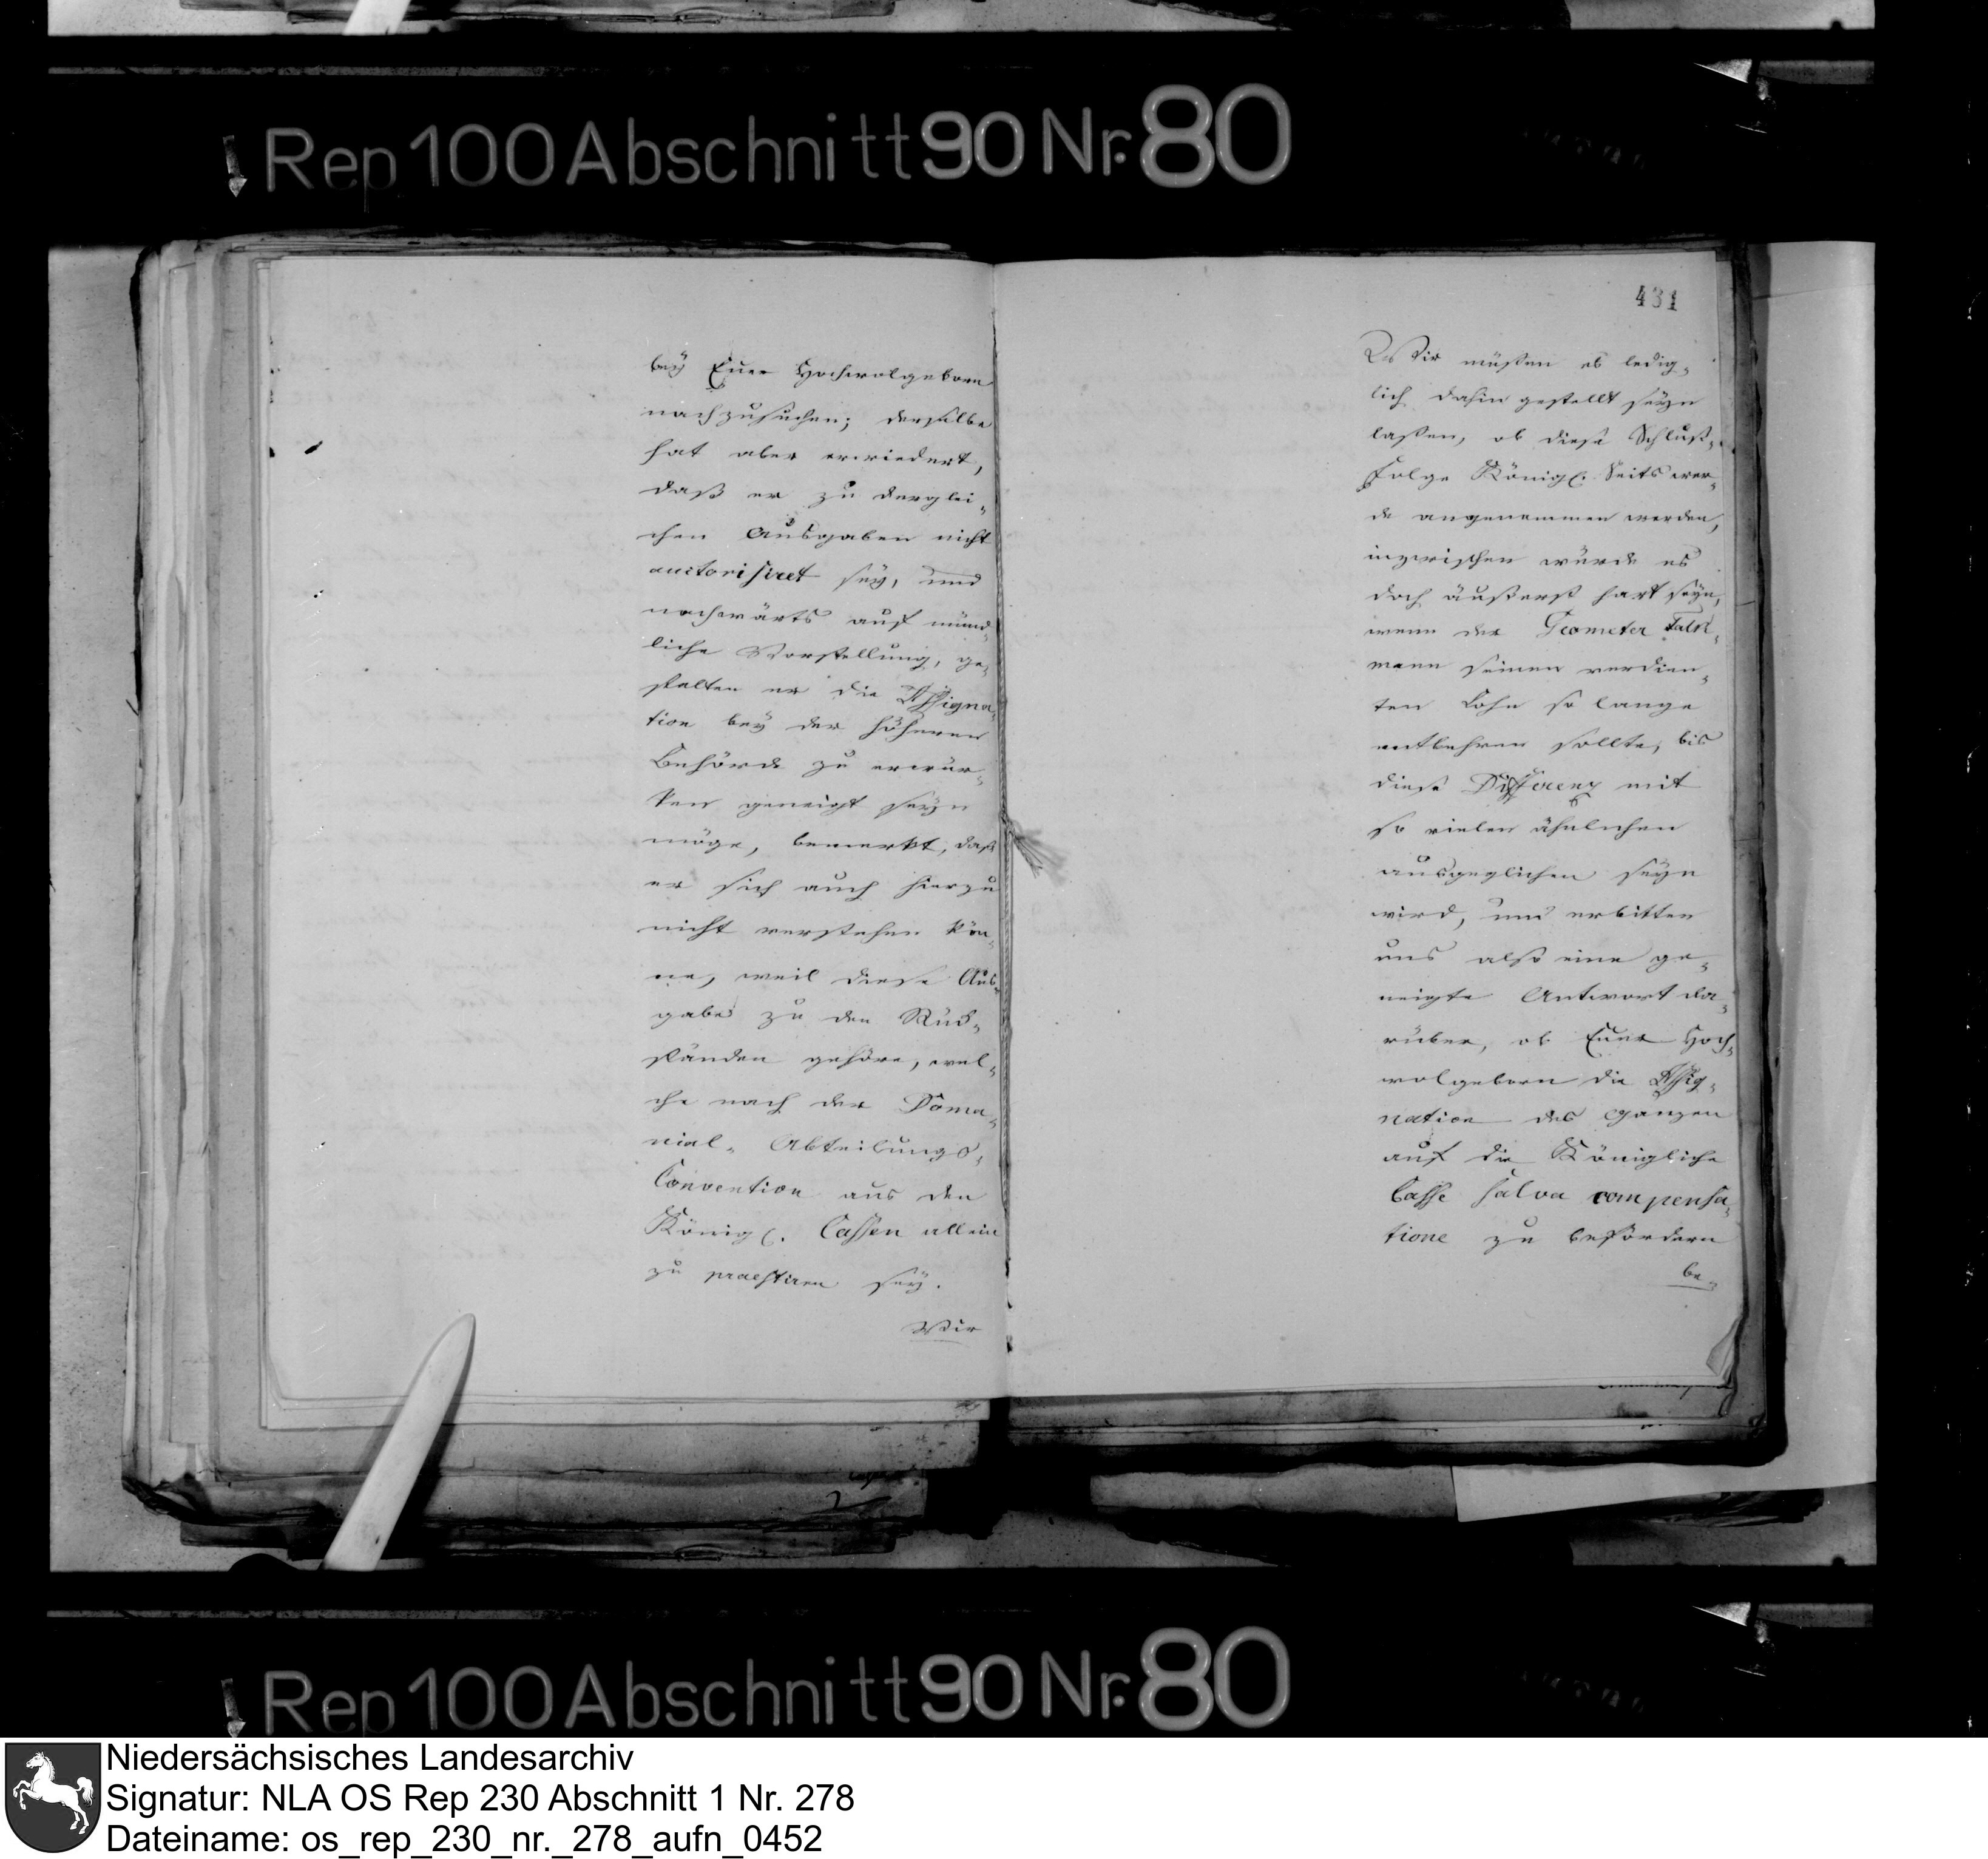 Rep 100 Abschnitt 90 Nr. 80
bey Euer Hochwolgeborn
nachzusuchen; derselbe
hat aber erwiedert,
daß er zu derglei-
chen Ausgaben nicht
auctorisiret sey, und
nachwärts auf münd-
liche Vorstellung, ge-
stalten er die Assigna-
tion bey der höheren
Behörde zu erwür-
ken geneigt seyn
möge, bemerkt, daß
er sich auch hierzu
nicht verstehen kön-
ne, weil diese Aus-
gabe zu den Rück-
ständen gehöre, wel-
che nach der Doma-
nial-Abteilungs-
Convention aus den
Königl. Cassen allein
zu praestiren sey.
Wir
431
Wir müßen es ledig-
lich dahin gestellt seyn
laßen, ob diese Schluß-
folge Königl. Seits wer-
de angenommen werden,
inzwischen würde es
doch äußerst hart seyn,
wenn der Geometer Falk-
mann seinen verdien-
ten Lohn so lange
entbehren sollte, bis
diese Differenz mit
so vielen ähnlichen
ausgeglichen seyn
wird, und erbitten
uns also eine ge-
neigte Antwort da-
rüber, ob Euer Hoch-
wolgeborn die Assig-
nation des Ganzen
auf die Königliche
Casse salva compensa-
tione zu befördern
be-
Rep 100 Abschnitt 90 Nr. 80
Niedersächsisches Landesarchiv
Signatur: NLA OS Rep 230 Abschnitt 1 Nr. 278
Dateiname: os_rep_230_nr._278_aufn_0452